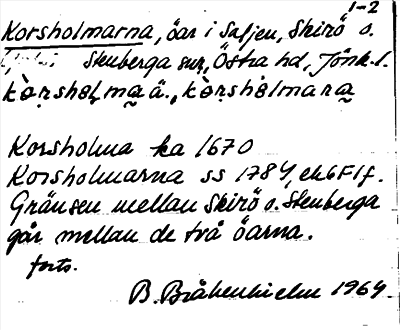 1-2
Korsholmarna, öar i Saljen, Skirö o.
Stenberga snr, Östra hd, Jönk.l.
Korsholma ka 1670
Korsholmarna ss 1784, ek6F1f.
Gränsen mellan Skirö o. Stenberga
går mellan de två öarna.
forts.
B. Bråkenhielm 1964.